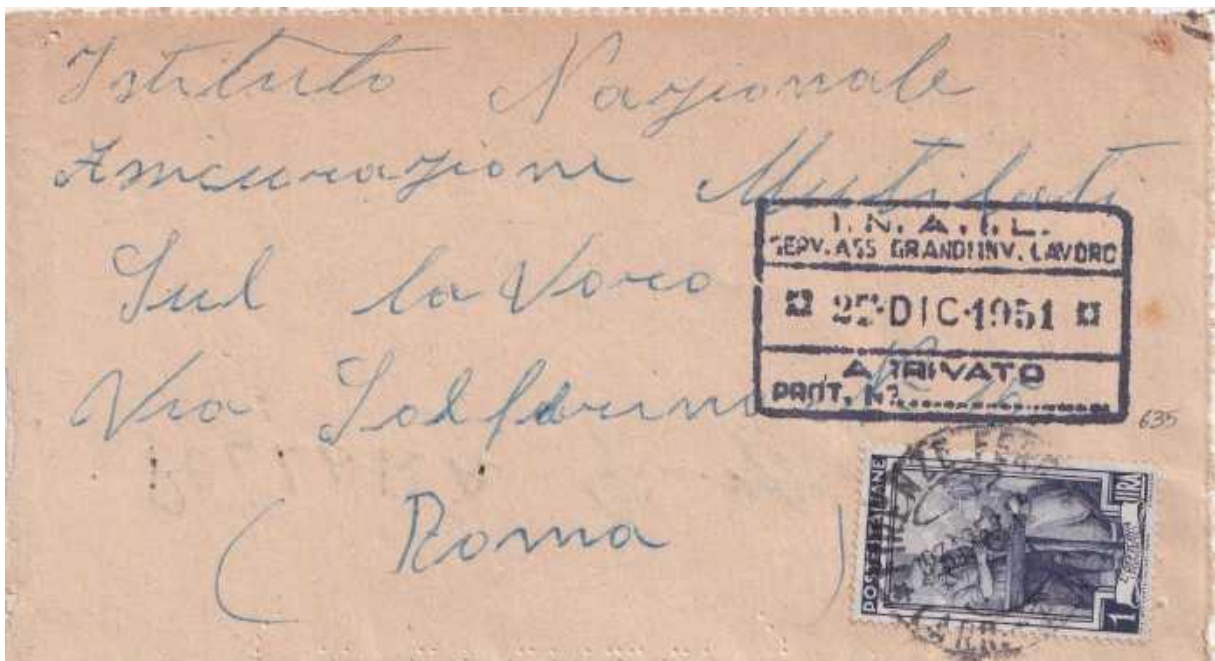 Istituto Nazionale
Assicurazione Mutilati
Sul la Voro
Via Solferino
( Roma )
I. N. A. I. L.
SERV. ASS GRANDI INV. LAVORO
DIC·1951
ARRIVATO
PROT. N?
635
POSTE ITALIANE
LIRA
1